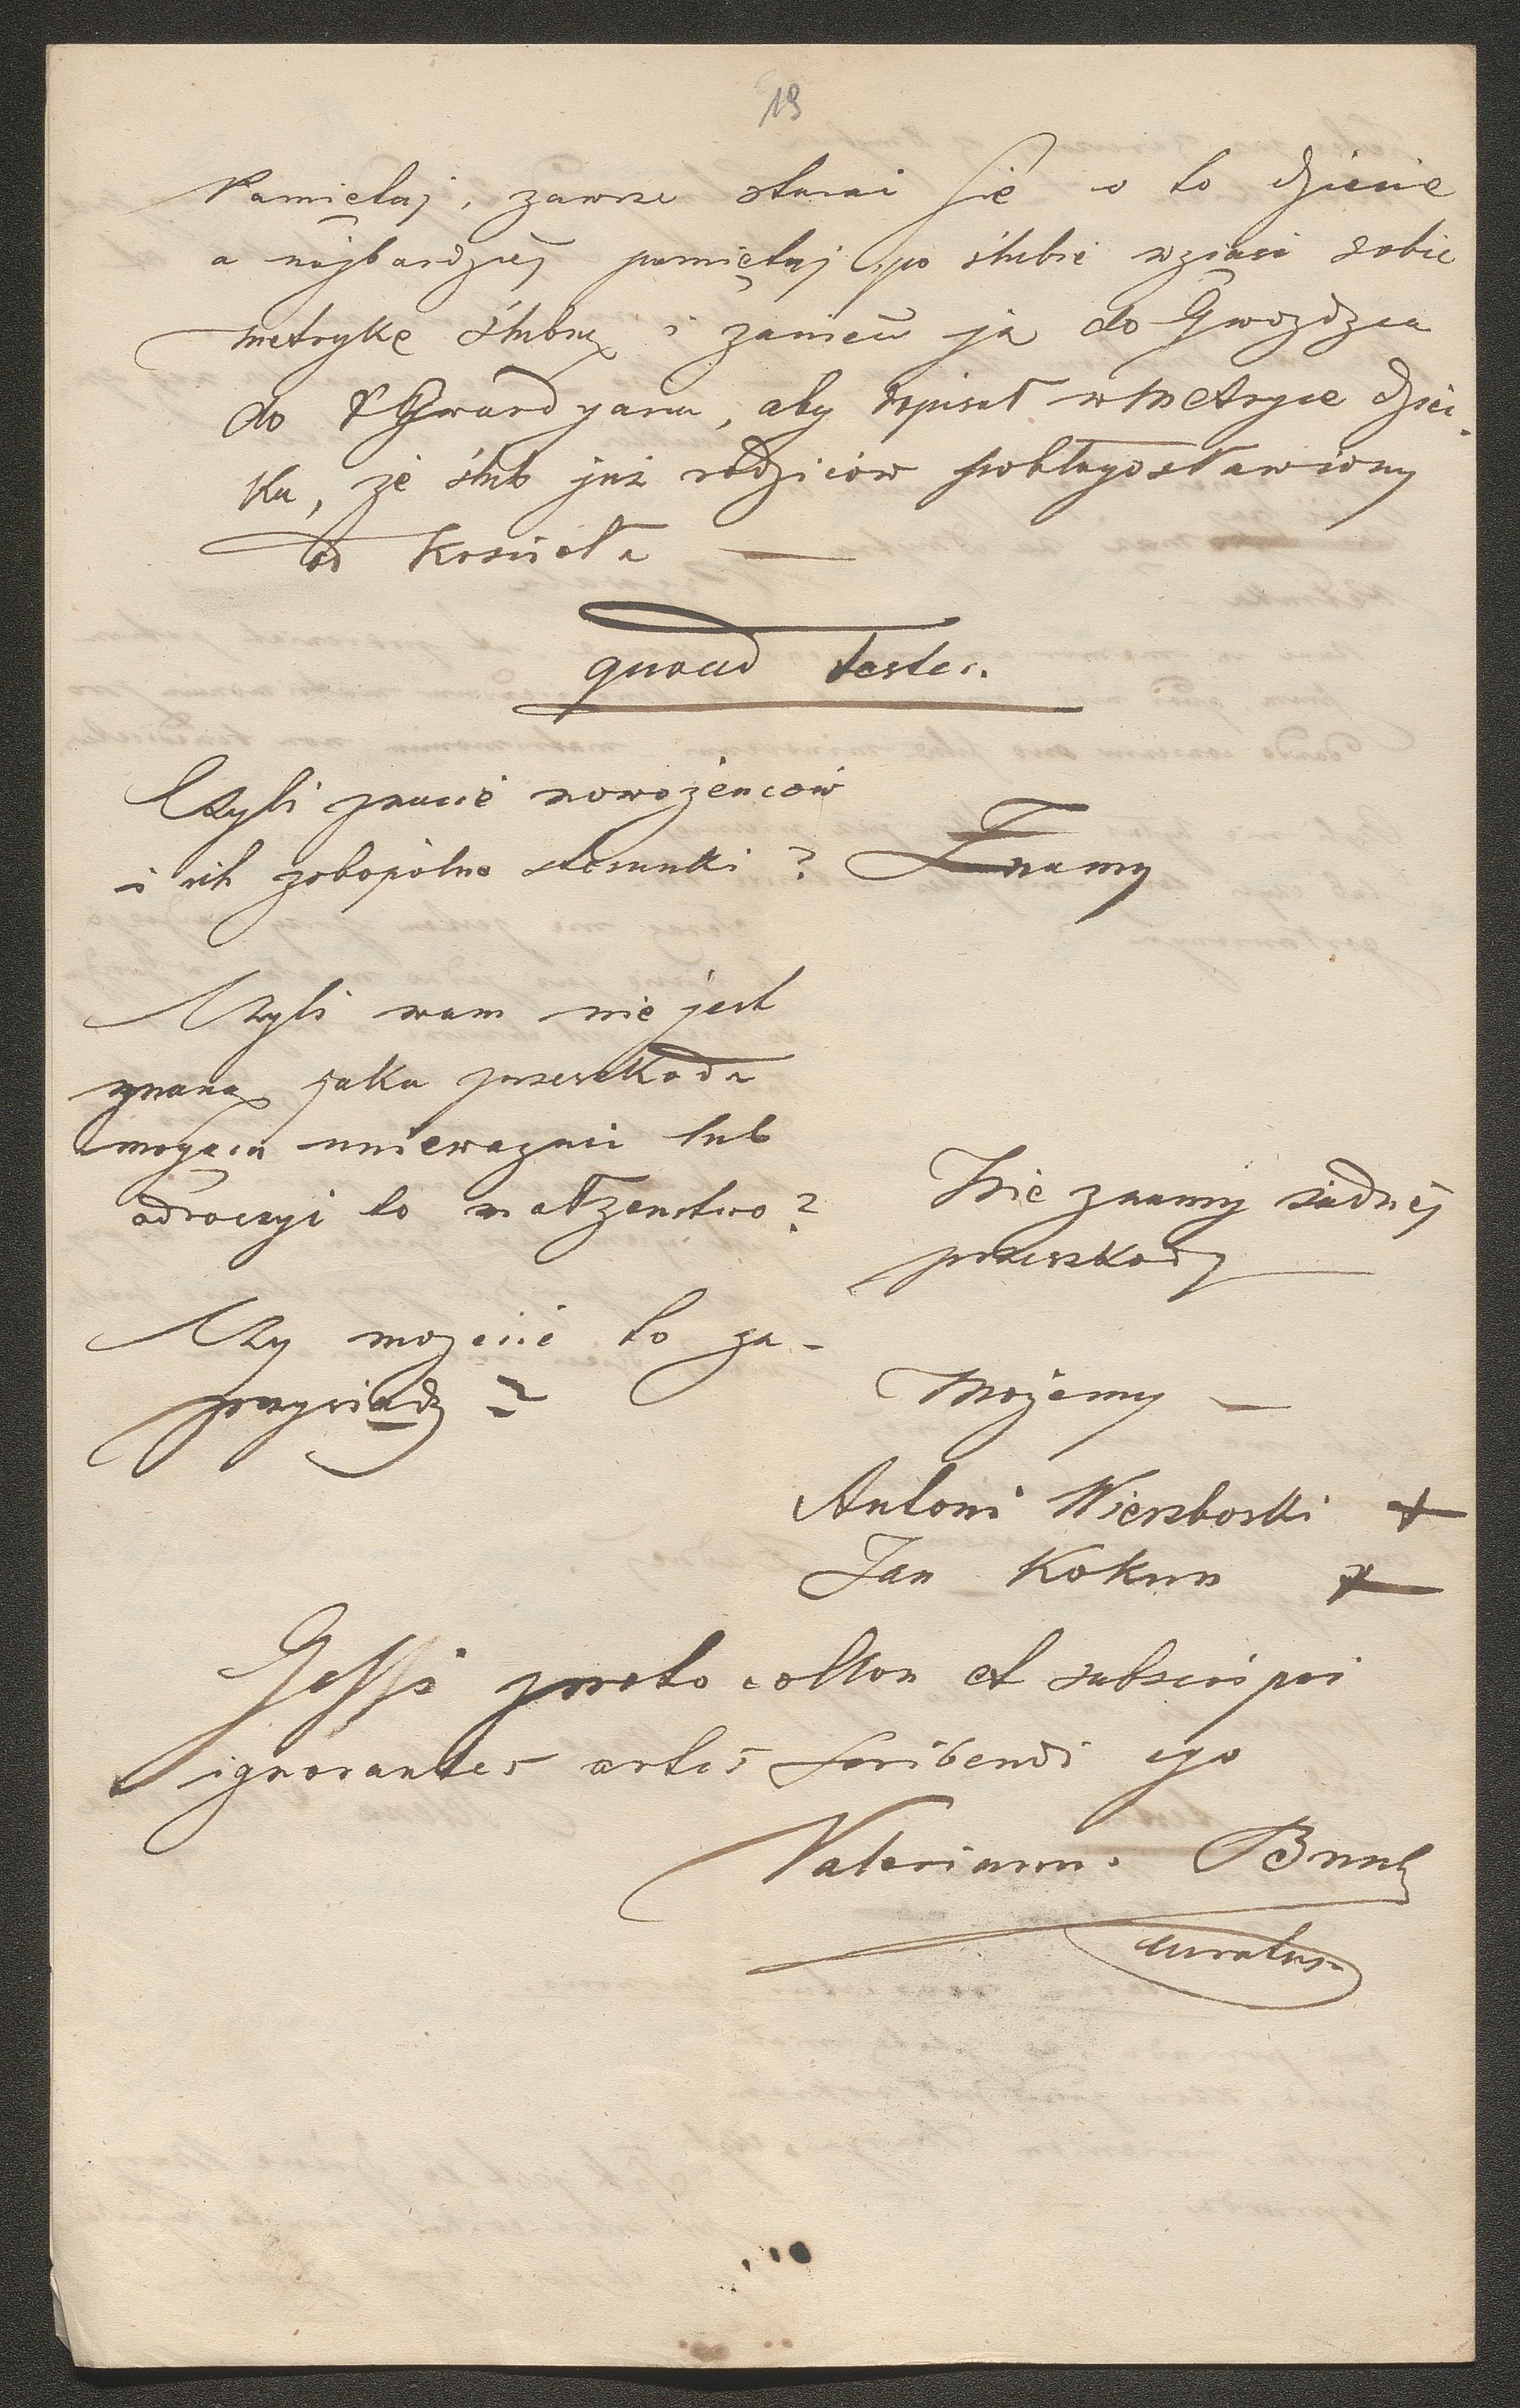 19
Pamiętaj, zawsze starać się o to dziecie
a najbardziej pamiętaj, po ślubie wziąść sobie
metrykę ślubną i zanieść ją do Gwozdzca
do P Gwardyana, aby wpisał w metryce dziec-
ka, że ślub już rodziców pobłogosławiony
od Kościoła —
quoad testes.
Czyli znacie nowożeńców
i ich zobopólne stosunki? Znamy
Czyli wam nie jest
znaną jaka przeszkoda
mogąca unieważnić lub
odroczyć to małżenstwo? Nie znamy żadnej
przeszkody —
Czy możecie to za-
przysiądz? Możemy —
Antoni Wierzboski +
Jan Kokun +
Gessi protocollon et subscripsi
ignorantes artis scribendi ego
Valerianus
curatus